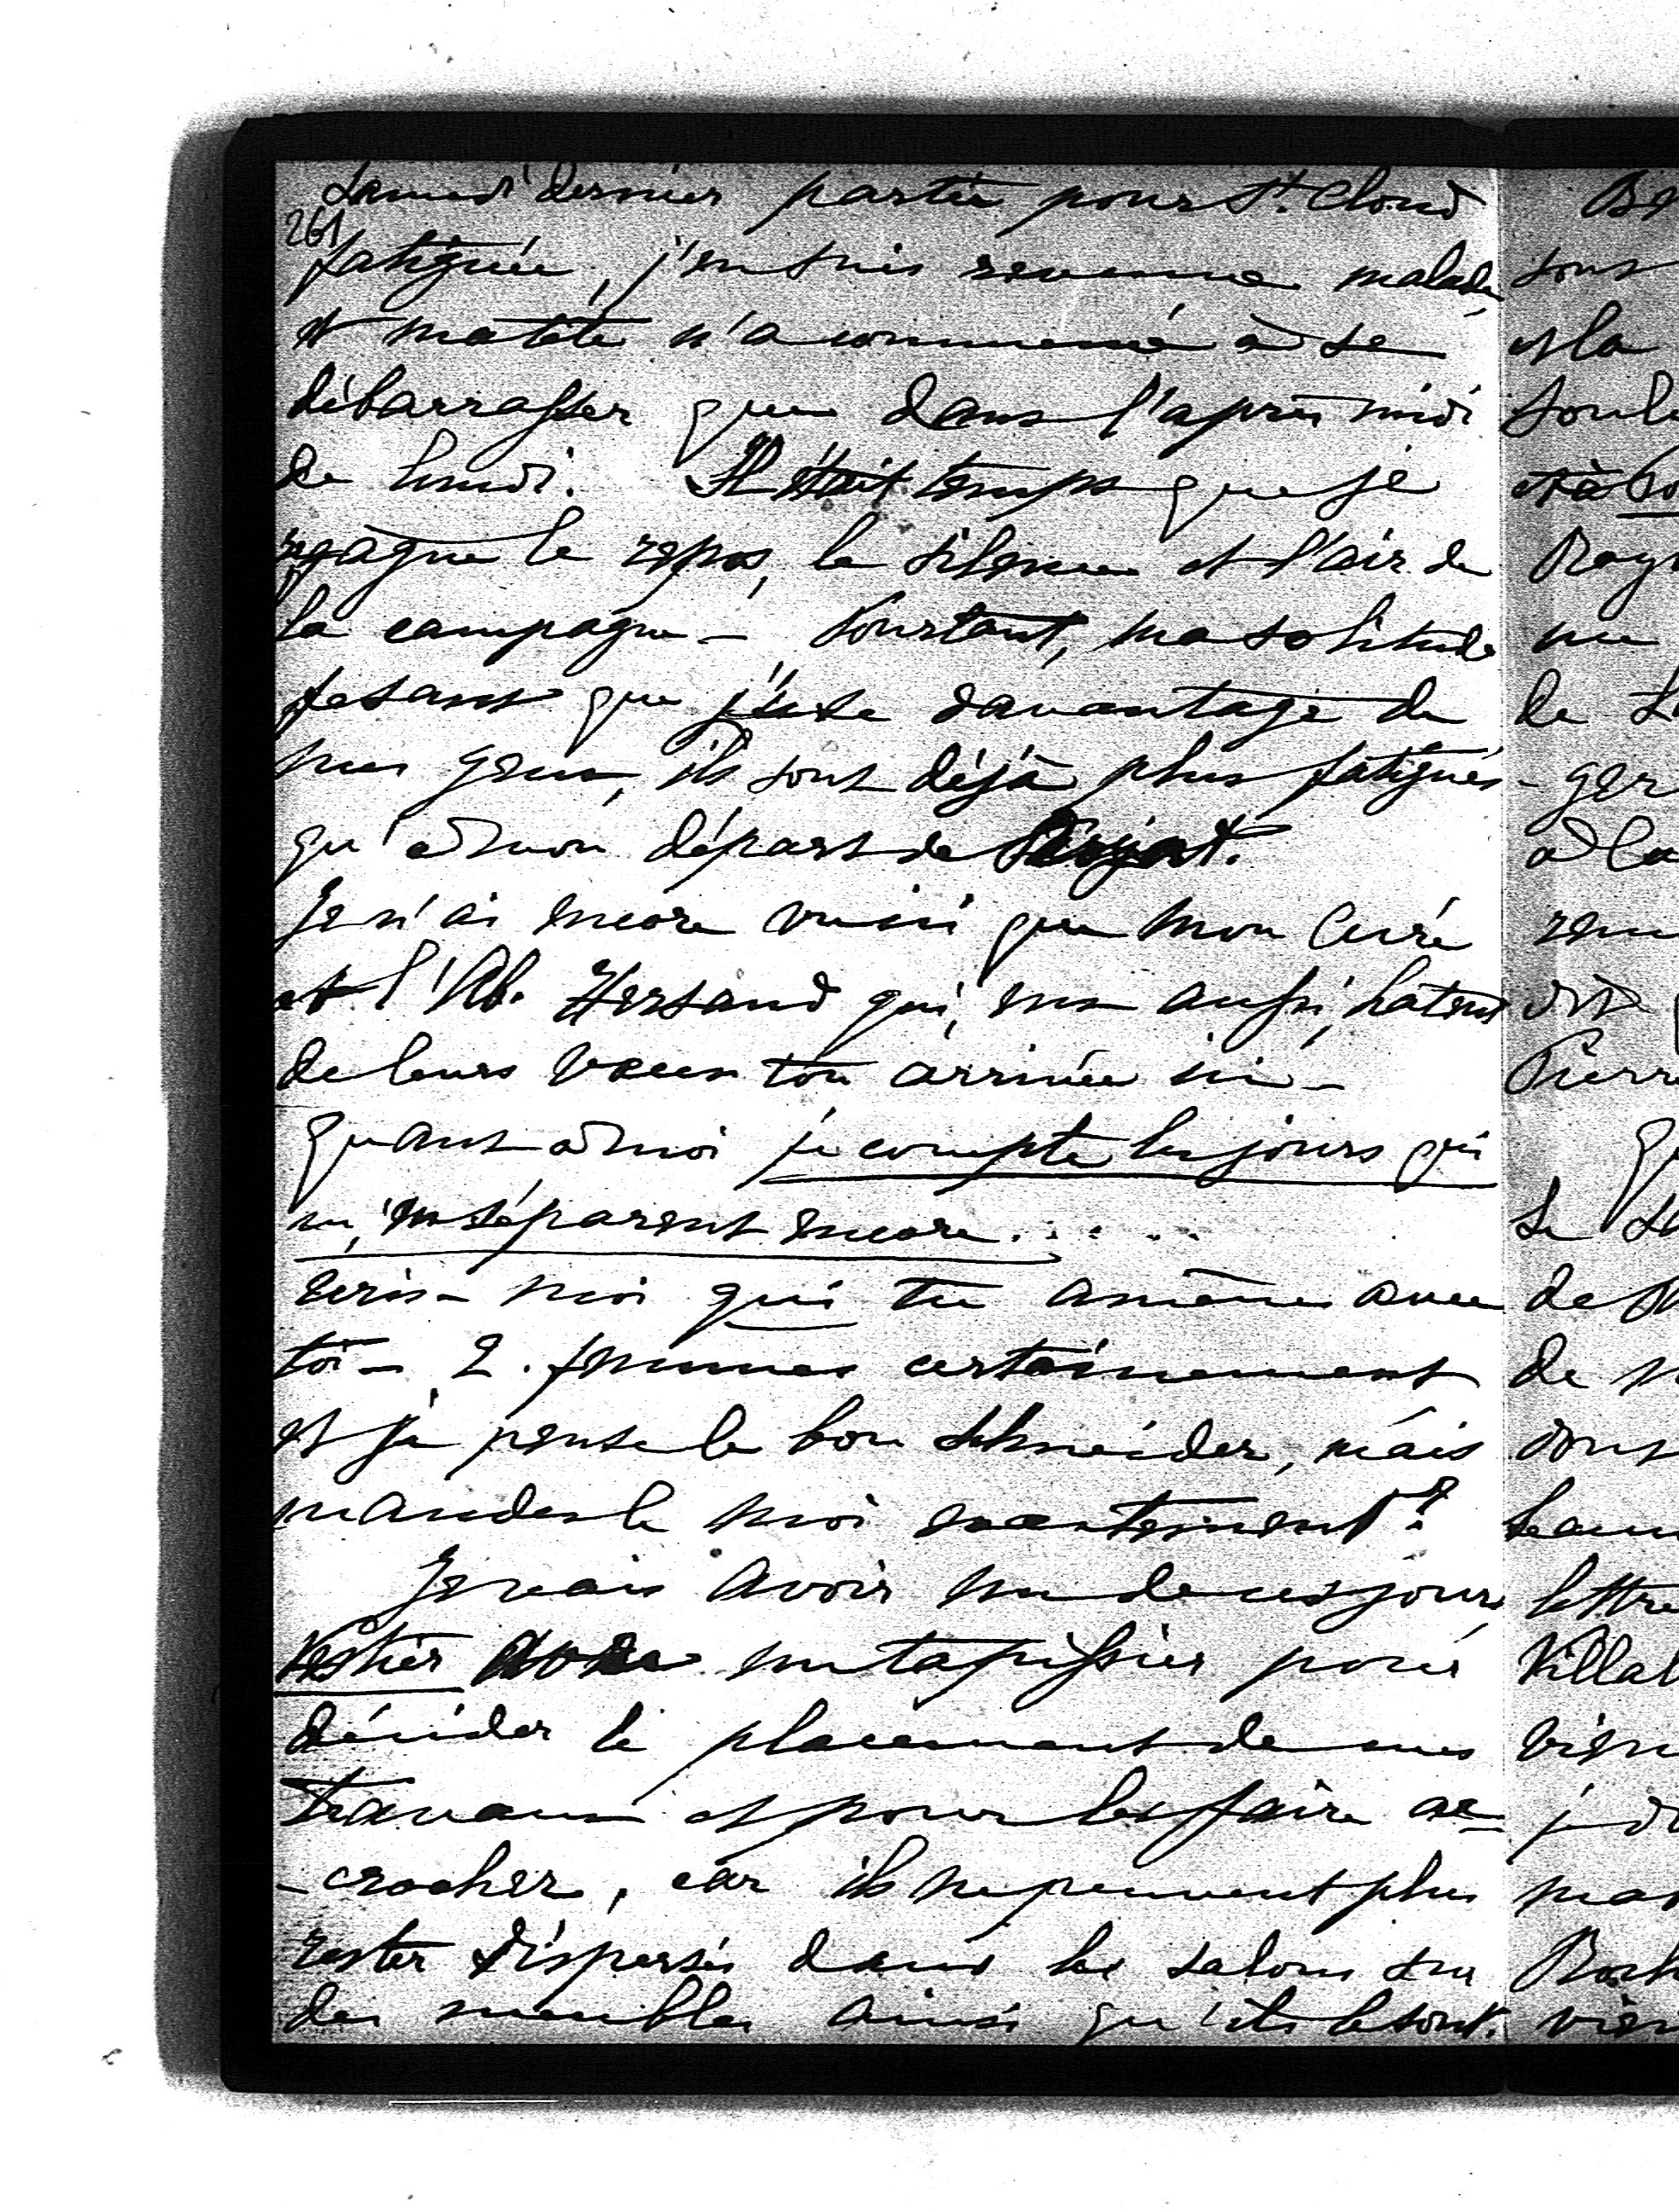 Samedi dernier partie pour St. Cloud
261
fatiguée, j'en suis revenue malade,
et ma tête n'a commencé à se
débarrasser que dans l'après midi
de lundi. Il était temps que je
regagne le repos, le silence et l'air de
la campagne – Pourtant, ma solitude
fesant que j'use davantage de
mes yeux, ils sont déjà plus fatigués
qu'à mon départ de
Je n'ai encore vu ici que mon Curé
et l'Ab. Hersand qui, eux aussi, hatent
de leurs vœux ton arrivée ici –
quant à moi je compte les jours qui
m'en séparent encore . . . .
écris-moi qui tu amènes avec
toi – 2. femmes certainement
et je pense le bon Schneider, mais
mandes le moi exactement?
Je vais avoir un de ces jours
Vestier un tapissier pour
décider le placement de mes
travaux et pour les faire ac-
-crocher, car ils ne peuvent plus
rester dispersés dans les salons sur
des meubles ainsi qu'ils le sont.
sont
et la
de
-ger
à la
Pierre
de
lettre